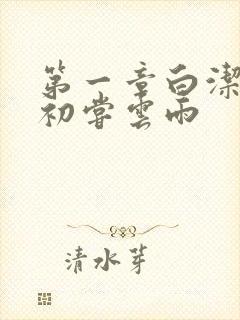 第一章白潔
初嘗雲雨
清水芽